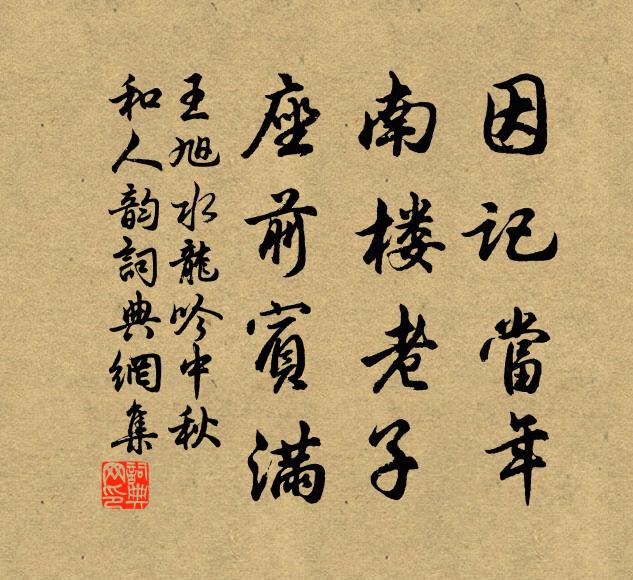 因记當年
南楼老子
座前賓滿
王旭水龍吟中秋
和人韵詞典網集
詞典
网印